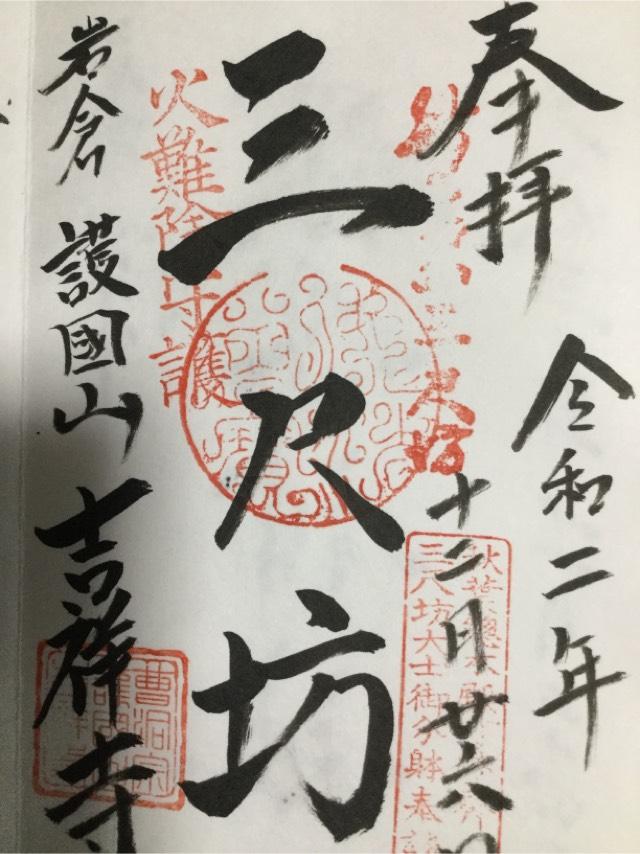 奉拝
令和二年
十二月廿六日
三尺坊
火難除守護
岩倉 護國山 吉祥寺
三尺坊大士御分躰奉
曹洞宗